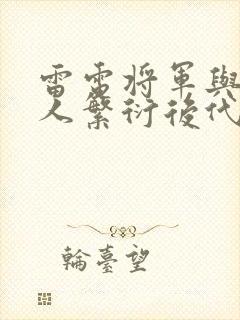 雷雷将軍與
人繁衍後代
輪臺望